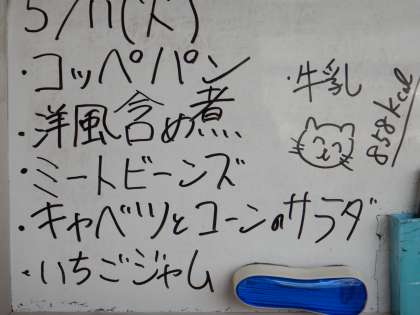 5/11(火)
・コッペパン
・洋風含め煮
・ミートビーンズ
・キャベツとコーンのサラダ
・いちごジャム
・牛乳
858kcal